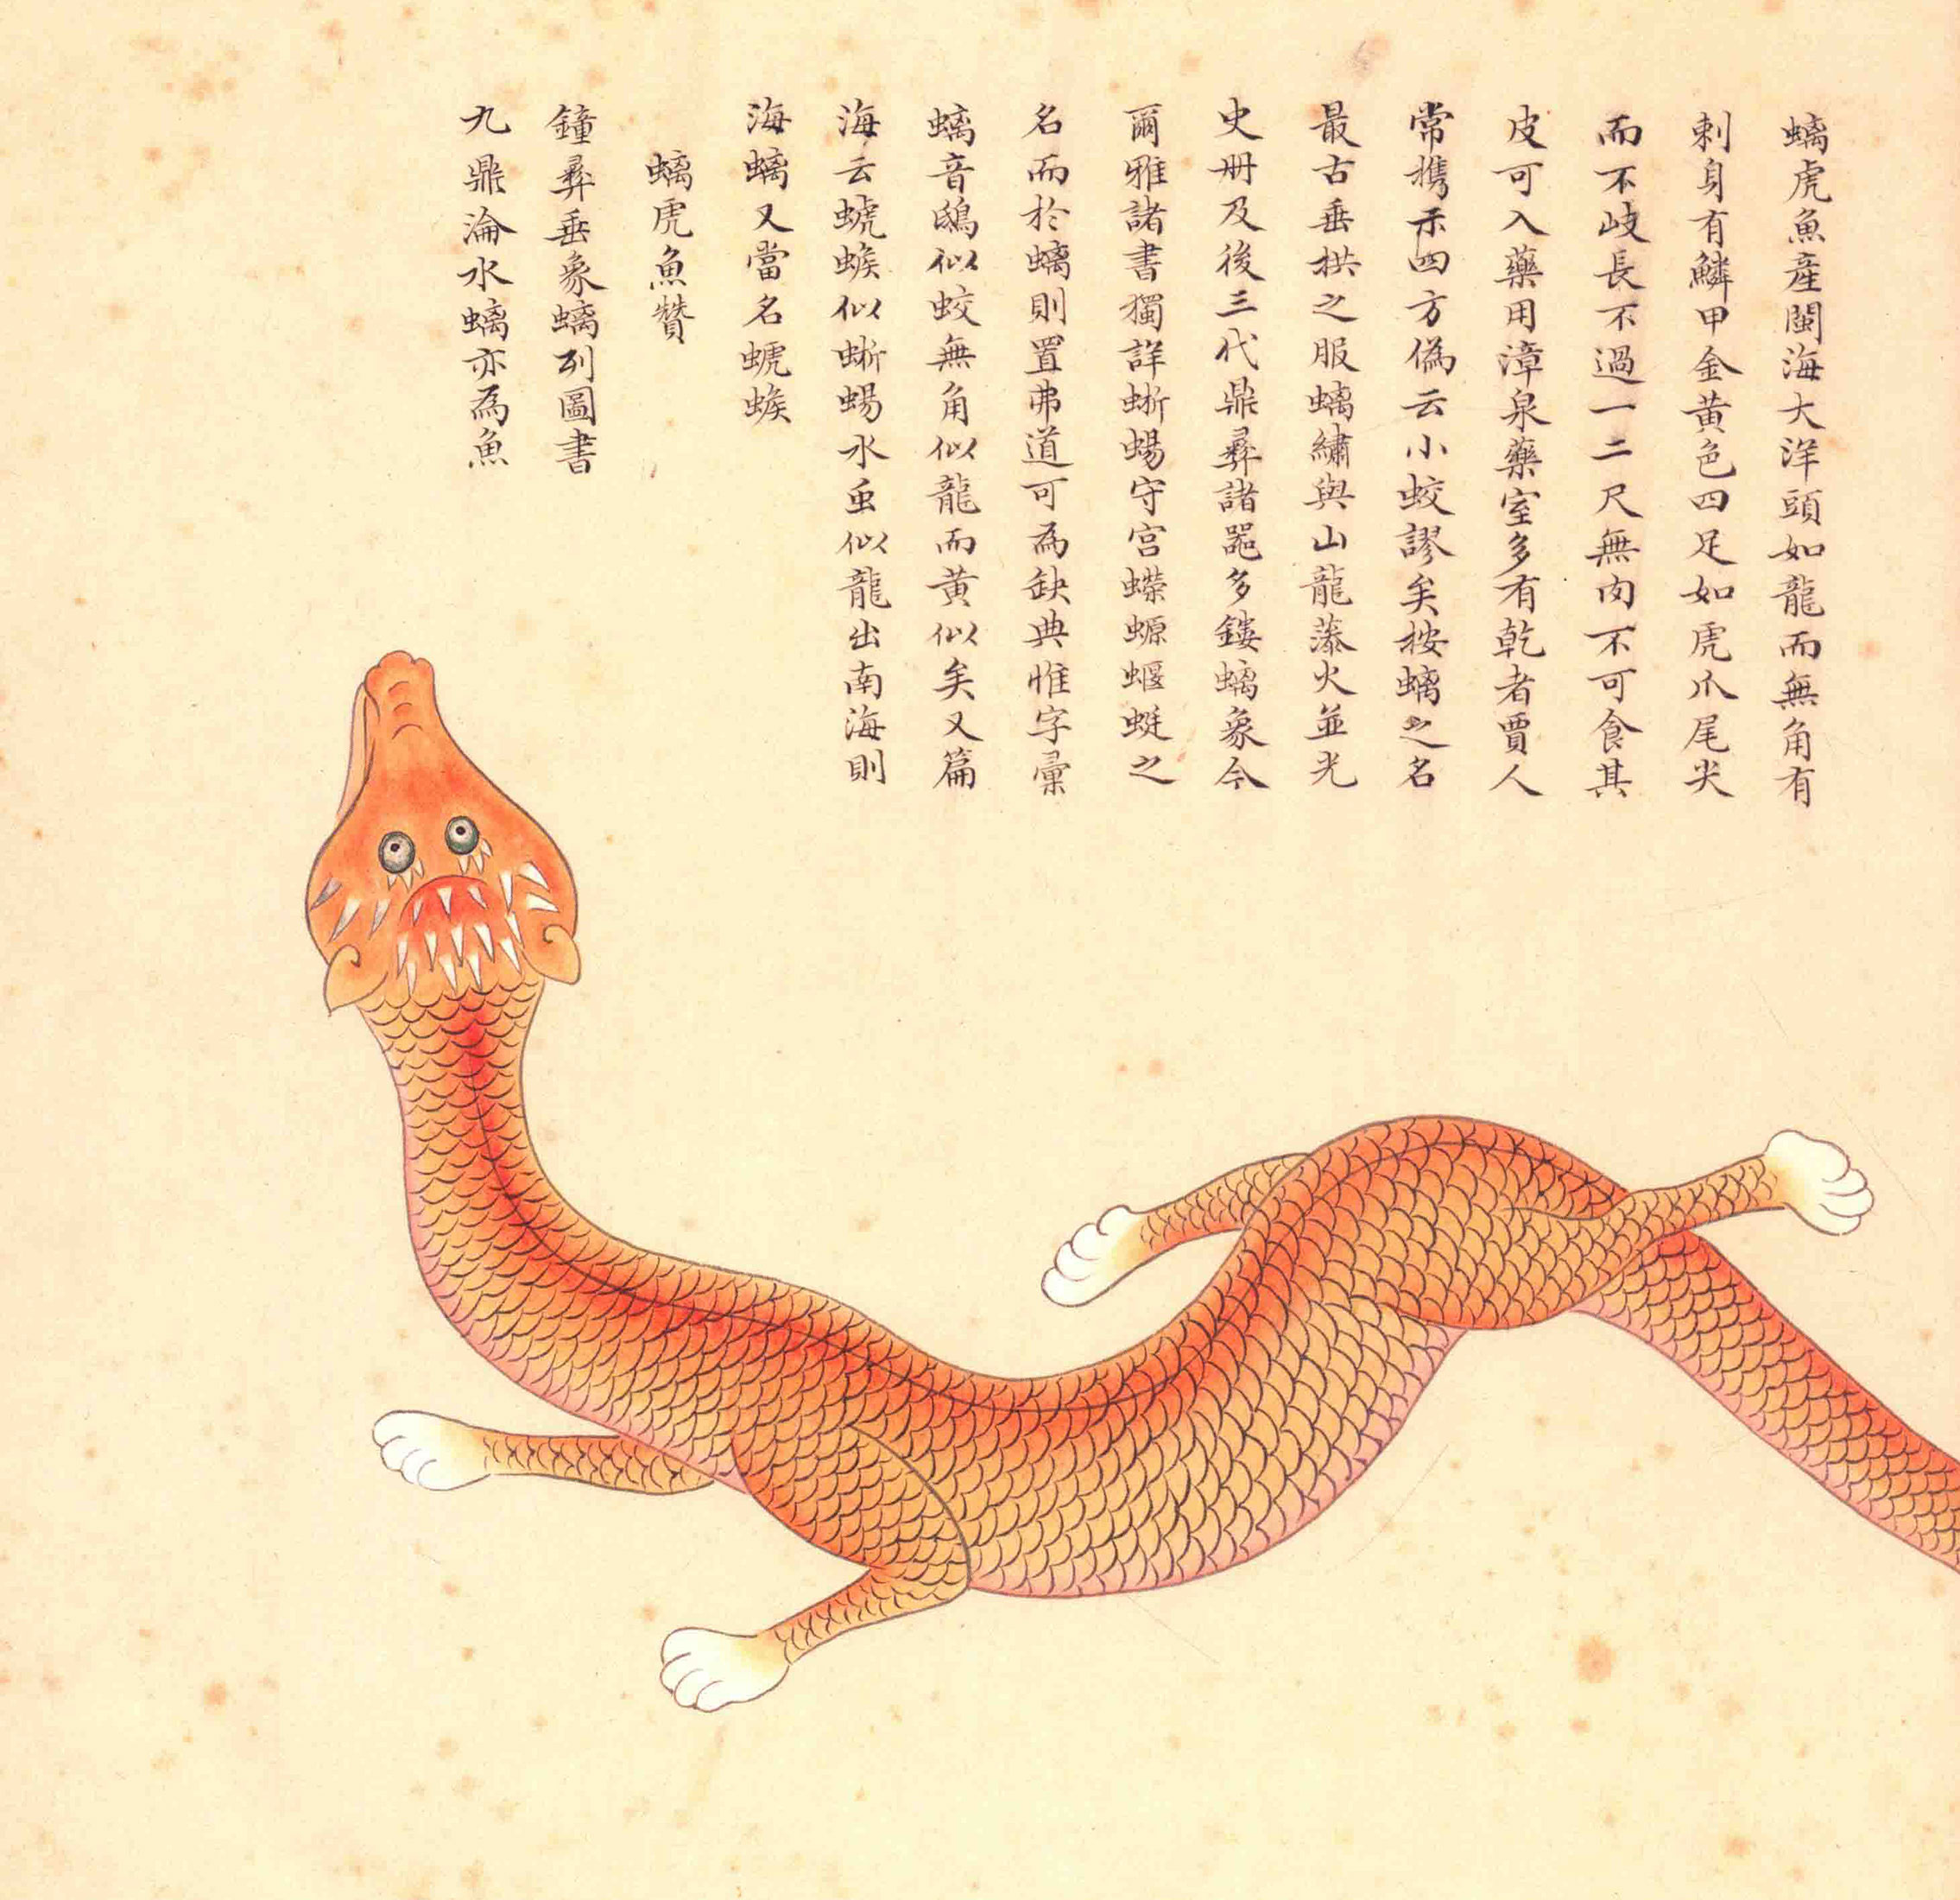 螭虎魚産閩海大洋頭如龍而無角有
刺身有鱗甲金黃色四足如虎爪尾尖
而不岐長不過一二尺無肉不可食其
皮可入藥用漳泉藥室多有乾者賈人
常携示四方偽云小蛟謬矣按螭之名
最古垂拱之服螭繡與山龍藻火並光
史册及後三代鼎彞諸器多鏤螭象今
爾雅諸書獨詳蜥蜴守宫蠑螈蝘蜓之
名而於螭則置弗道可為缺典惟字彙
螭音鴟似蛟無角似龍而黃似矣又篇
海云螔䗔似蜥蜴水虫似龍出南海則
海螭又當名螔䗔
螭虎魚贊
鐘彞垂象螭列圖書
九鼎淪水螭亦為魚